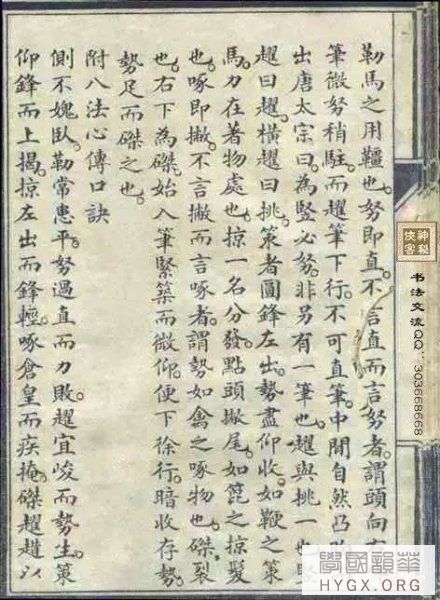 勒馬之用韁也。努即直。不言直而言努者。謂頭向
筆微努稍駐。而趯筆下行。不可直筆。中間自然凸
出唐太宗曰。為竪必努。非另有一筆也。趯與挑一也
趯曰趯。橫趯曰挑。策者圓鋒左出。勢盡仰收。如鞭之策
馬。力在著物處也。掠一名分發。點頭撇尾。如篦之掠髮
也。啄即撇。不言撇而言啄者。謂勢如禽之啄物也。磔裂
也。右下為磔。始入筆緊築而微仰。便下徐行。暗收存勢。
勢足而磔之也。
附八法心傳口訣
側不媿臥。勒常患平。努過直而力敗。趯宜峻而勢生。策
仰鋒而上揭。掠左出而鋒輕。啄倉皇而疾掩。磔趯趞以
神秘俠客
书法交流QQ：303668668
學國韻華
HYGX.ORG